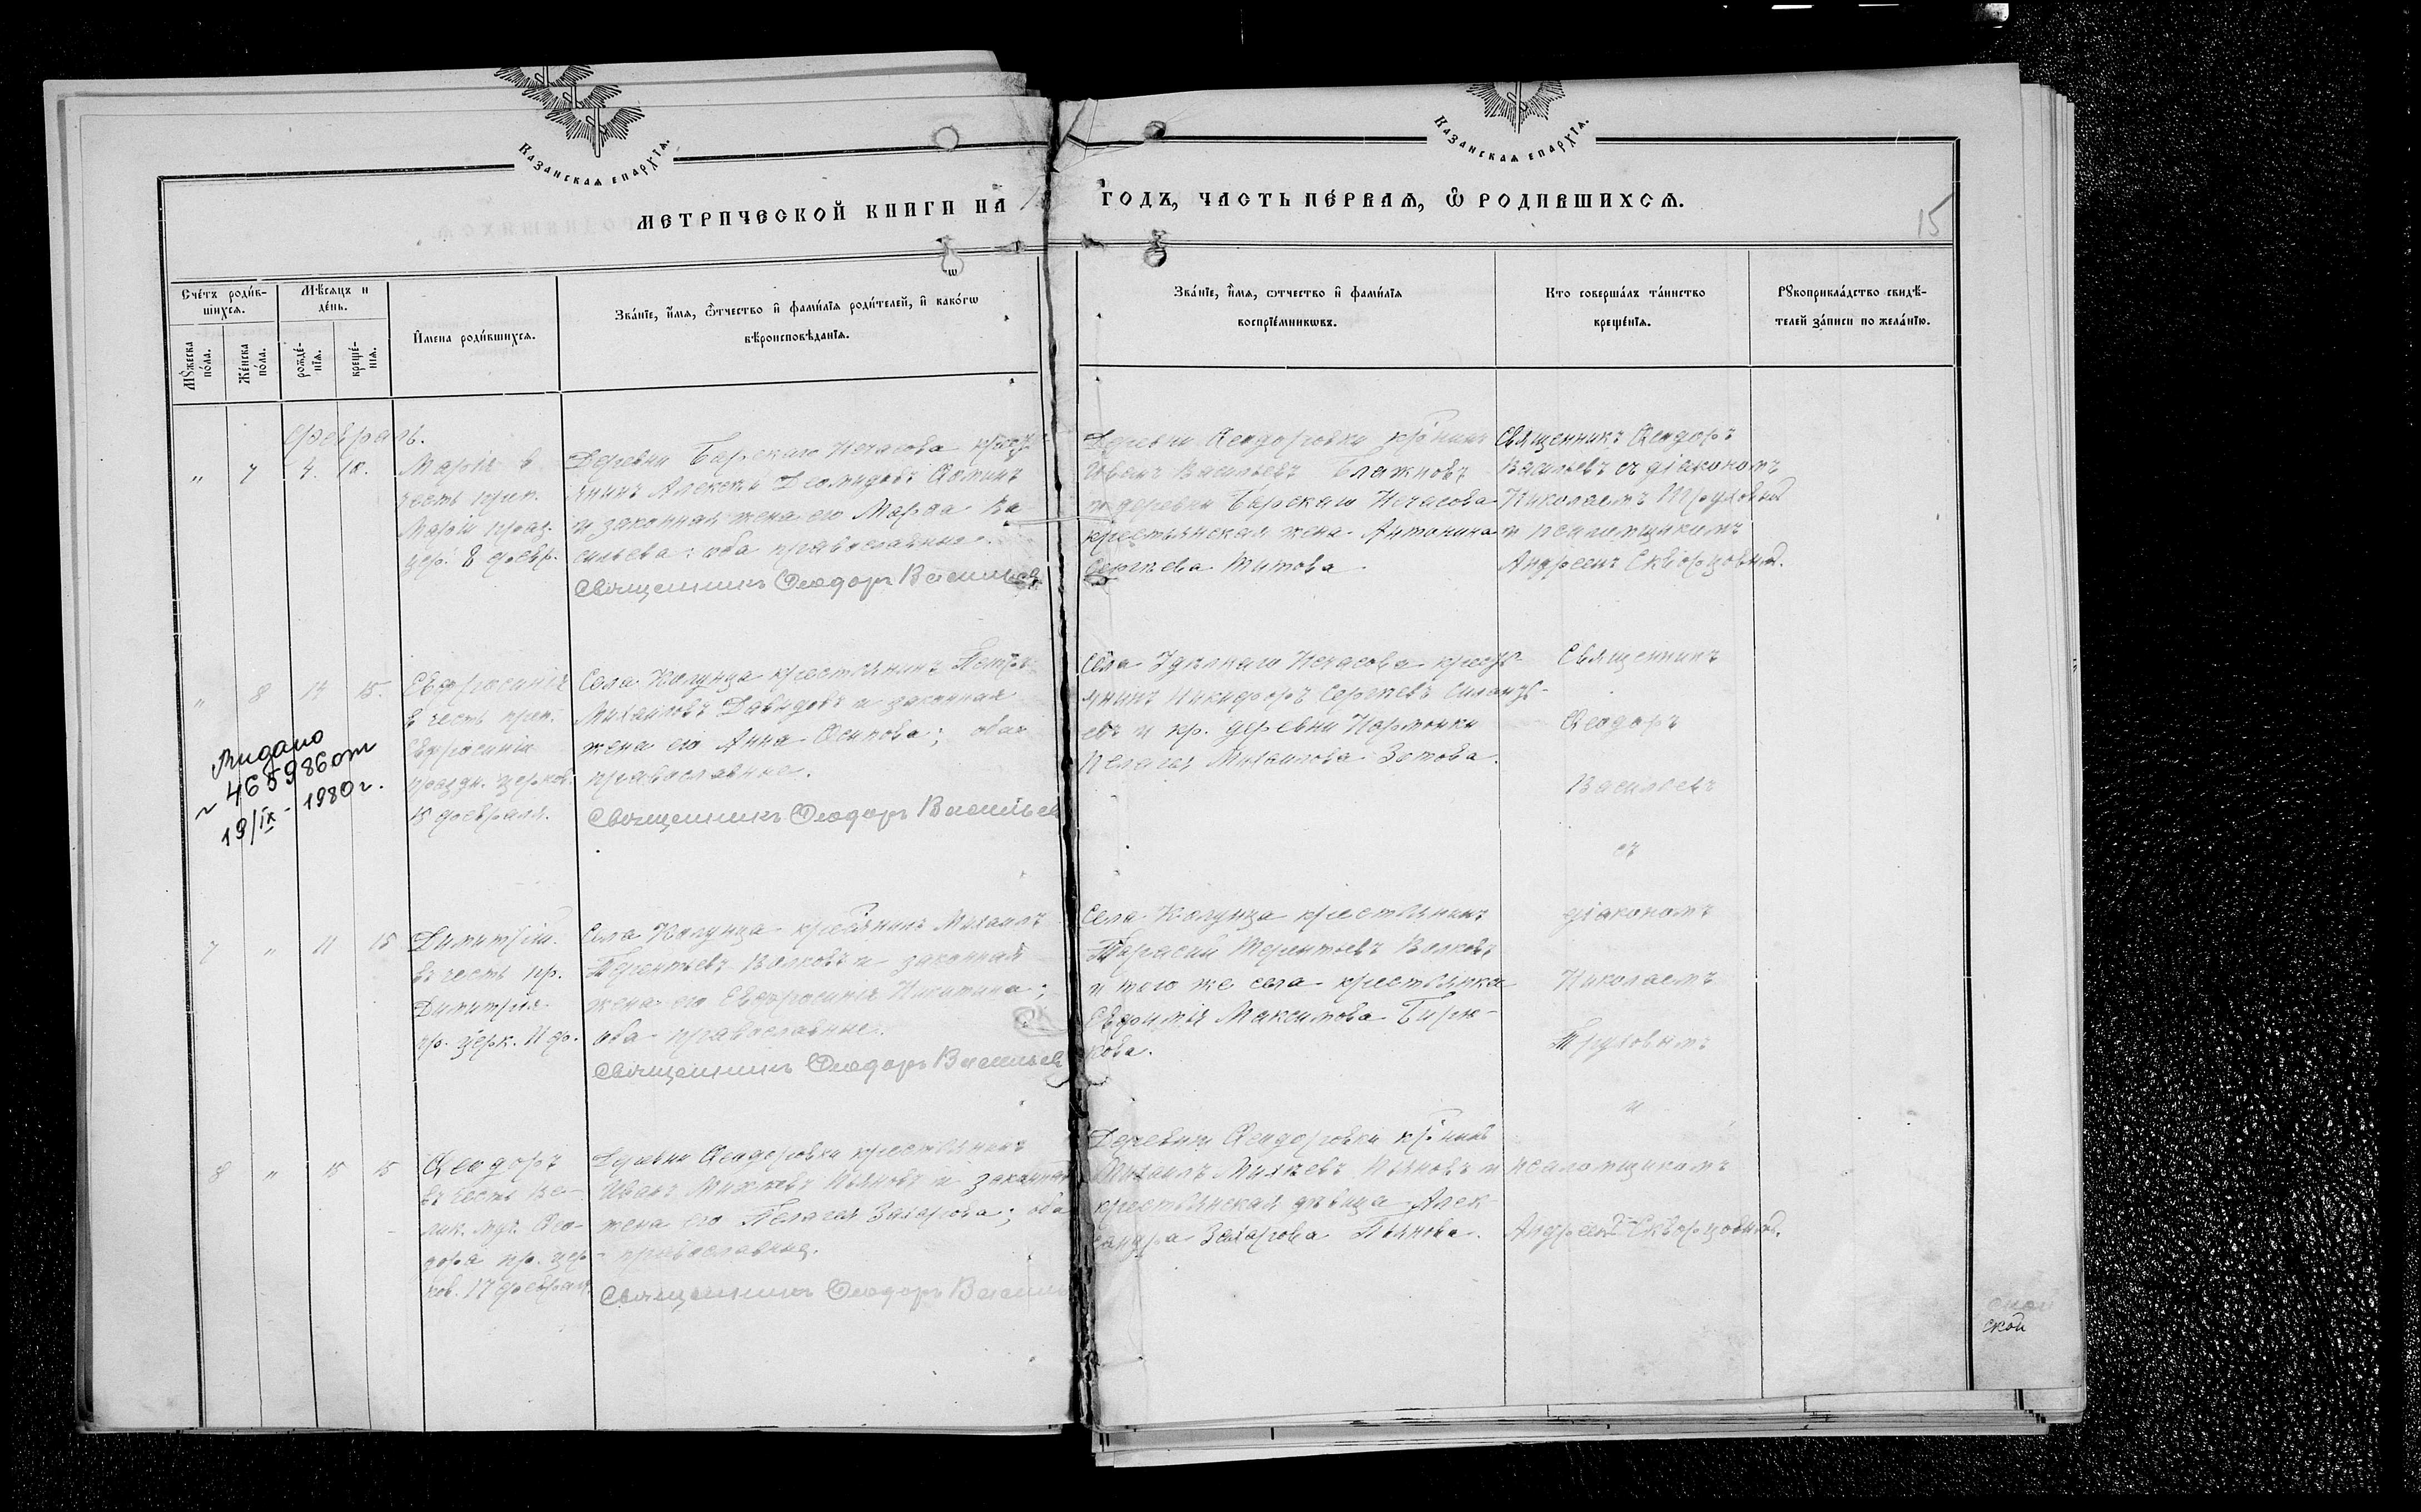 Казанская епархїѧ.
Казанская епархїѧ.
МЕТРИЧЕСКОЙ КНИГИ НА
ГОДЪ, ЧАСТЬ ПЕ́РВАѦ, Ѽ РОДИВШИХСѦ.
15
Сче́тъ роди́в-
шихсѧ.
Мѣ́сѧцъ и
де́нь.
Мꙋ́жеска
по́ла.
Же́нска
по́ла.
рожде́-
нїѧ.
креще́-
нїѧ.
И҆мена роди́вшихсѧ.
Зва́нїе, и҆́мѧ, ѻ҆́тчество и҆ фами́лїѧ роди́телей, и҆ како́гѡ
вѣроисповѣ́данїѧ.
Зва́нїе, и҆́мѧ, ѻтчество и҆ фами́лїѧ
воспрїе́мникѡвъ.
Кто соверша́лъ та́инство
креще́нїѧ.
Рꙋкоприкла́дство свидѣ́-
телей за́писи по жела́нїю.
Февраль.
„ 7 4. 10.
Марія в
честь преп.
Маріи праз.
цер. 8 февр.
Деревни Барскаго Нечасова крестья-
янинъ Алексѣй Ѳоминъ
и законная жена его Марѳа Ва
сильева; оба православные.
Священникъ Ѳеодоръ Васильевъ
Деревни Ѳеодоровки
Иванъ Васильевъ Блажновъ
и деревни Барскаго Нечасова
крестьянская жена Антонина
Сергѣева Титова.
Священникъ Ѳеодоръ
Васильевъ съ діакономъ
Николаемъ Труховымъ
и псаломщикомъ
Андреемъ Скворцовымъ.
„ 8 14 15.
Евфросинія
в честь преп.
Евфросиніи
праздн. церков.
15 февраля.
Видано
№ 465986 от
19/IX - 1980 г.
Села Колунца крестьянинъ Петръ
Михаиловъ Давыдовъ и законная
жена его Анна Осипова; оба
православные.
Священникъ Ѳеодоръ Васильев
Села Удѣлнаго Нечасова кресть-
янинъ Никифоръ Сергѣевъ Силанть-
евъ и кр. деревни Нармонки
Пелагея Михаилова Зотова.
Священникъ
Ѳеодоръ
Васильевъ
съ
7 „ 11 15
Димитрій.
въ честь пр.
Димитрія
пр. церк. 11 ф.
Села Колунца Михаилъ
Терентьевъ Волковъ и законная
жена его Евфросинія Никитина;
оба православные.
Священникъ Ѳеодоръ Васильев
Села Колунца крестьянинъ
Тарасій Терентьевъ Волковъ
и того же села крестьянка
Евфимія Максимова Бирю-
кова.
діакономъ
Николаемъ
Труховымъ
и
8 „ 15 15
Ѳеодоръ
въ честь Ве-
лик. муч. Ѳео-
дора пр. цер
ков. 17 февраля.
Деревни Ѳеодоровки крестьянинъ
Иванъ Михѣевъ Пьяновъ и законная
жена его Пелагея Захарова; оба
православные.
Священникъ Ѳеодоръ Василь
Деревни Ѳеодоровки
Михаилъ Михѣевъ Пьяновъ и
крестьянская дѣвица Алек-
сандра Захарова Пьянова.
псаломщикомъ
Андреемъ Скворцовымъ.
ской